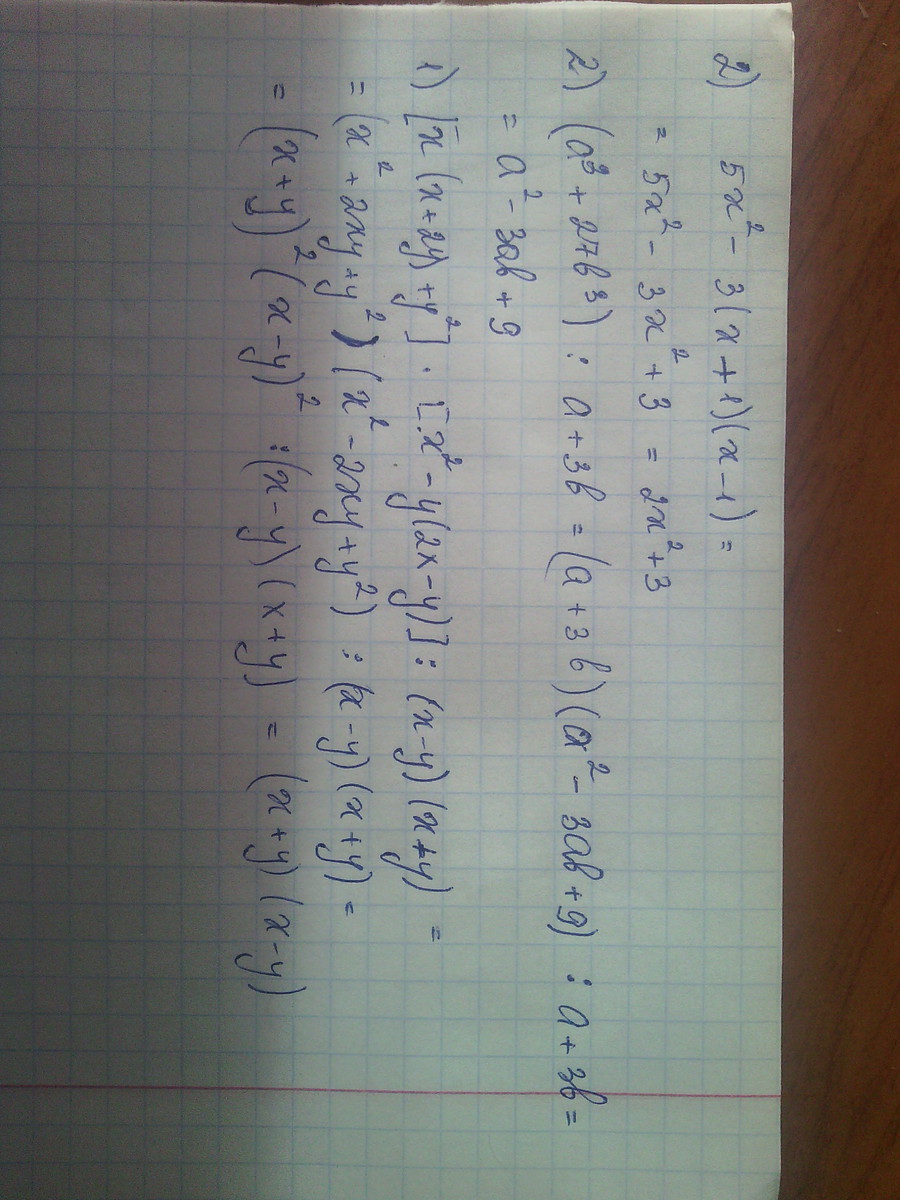 2) 5x² - 3(x+1)(x-1) =
= 5x² - 3x² + 3 = 2x² + 3
2) (a³ + 27b³) : a + 3b = (a + 3b)(a² - 3ab + 9) : a + 3b =
= a² - 3ab + 9
1) [x(x+2y) + y²] · [x² - y(2x-y)] : (x-y)(x+y) =
= (x² + 2xy + y²)(x² - 2xy + y²) : (x-y)(x+y) =
= (x+y)²(x-y)² : (x-y)(x+y) = (x+y)(x-y)